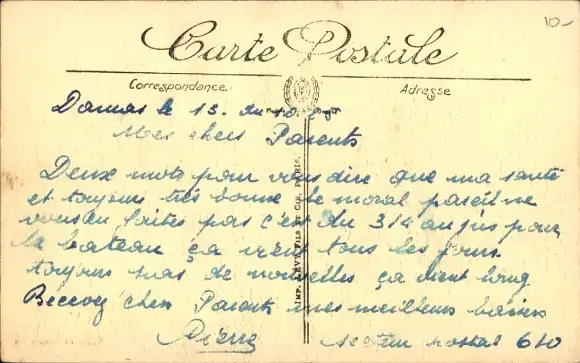 10-
Carte Postale
Correspondance
Adresse
Damas le 13.
Mes chers Parents
Deux mots pour vous dire que ma santé
et toujours très bonne le moral pareil ne
vous en faites pas c'est du 314 au jus pour
le bateau ça vient tous les jours
toujours pas de nouvelles ça vient long
Recevez chers Parents mes meilleurs baisers
Pierre Secteur postal 610
IMP. LÉVY FILS ET CIE, PARIS.